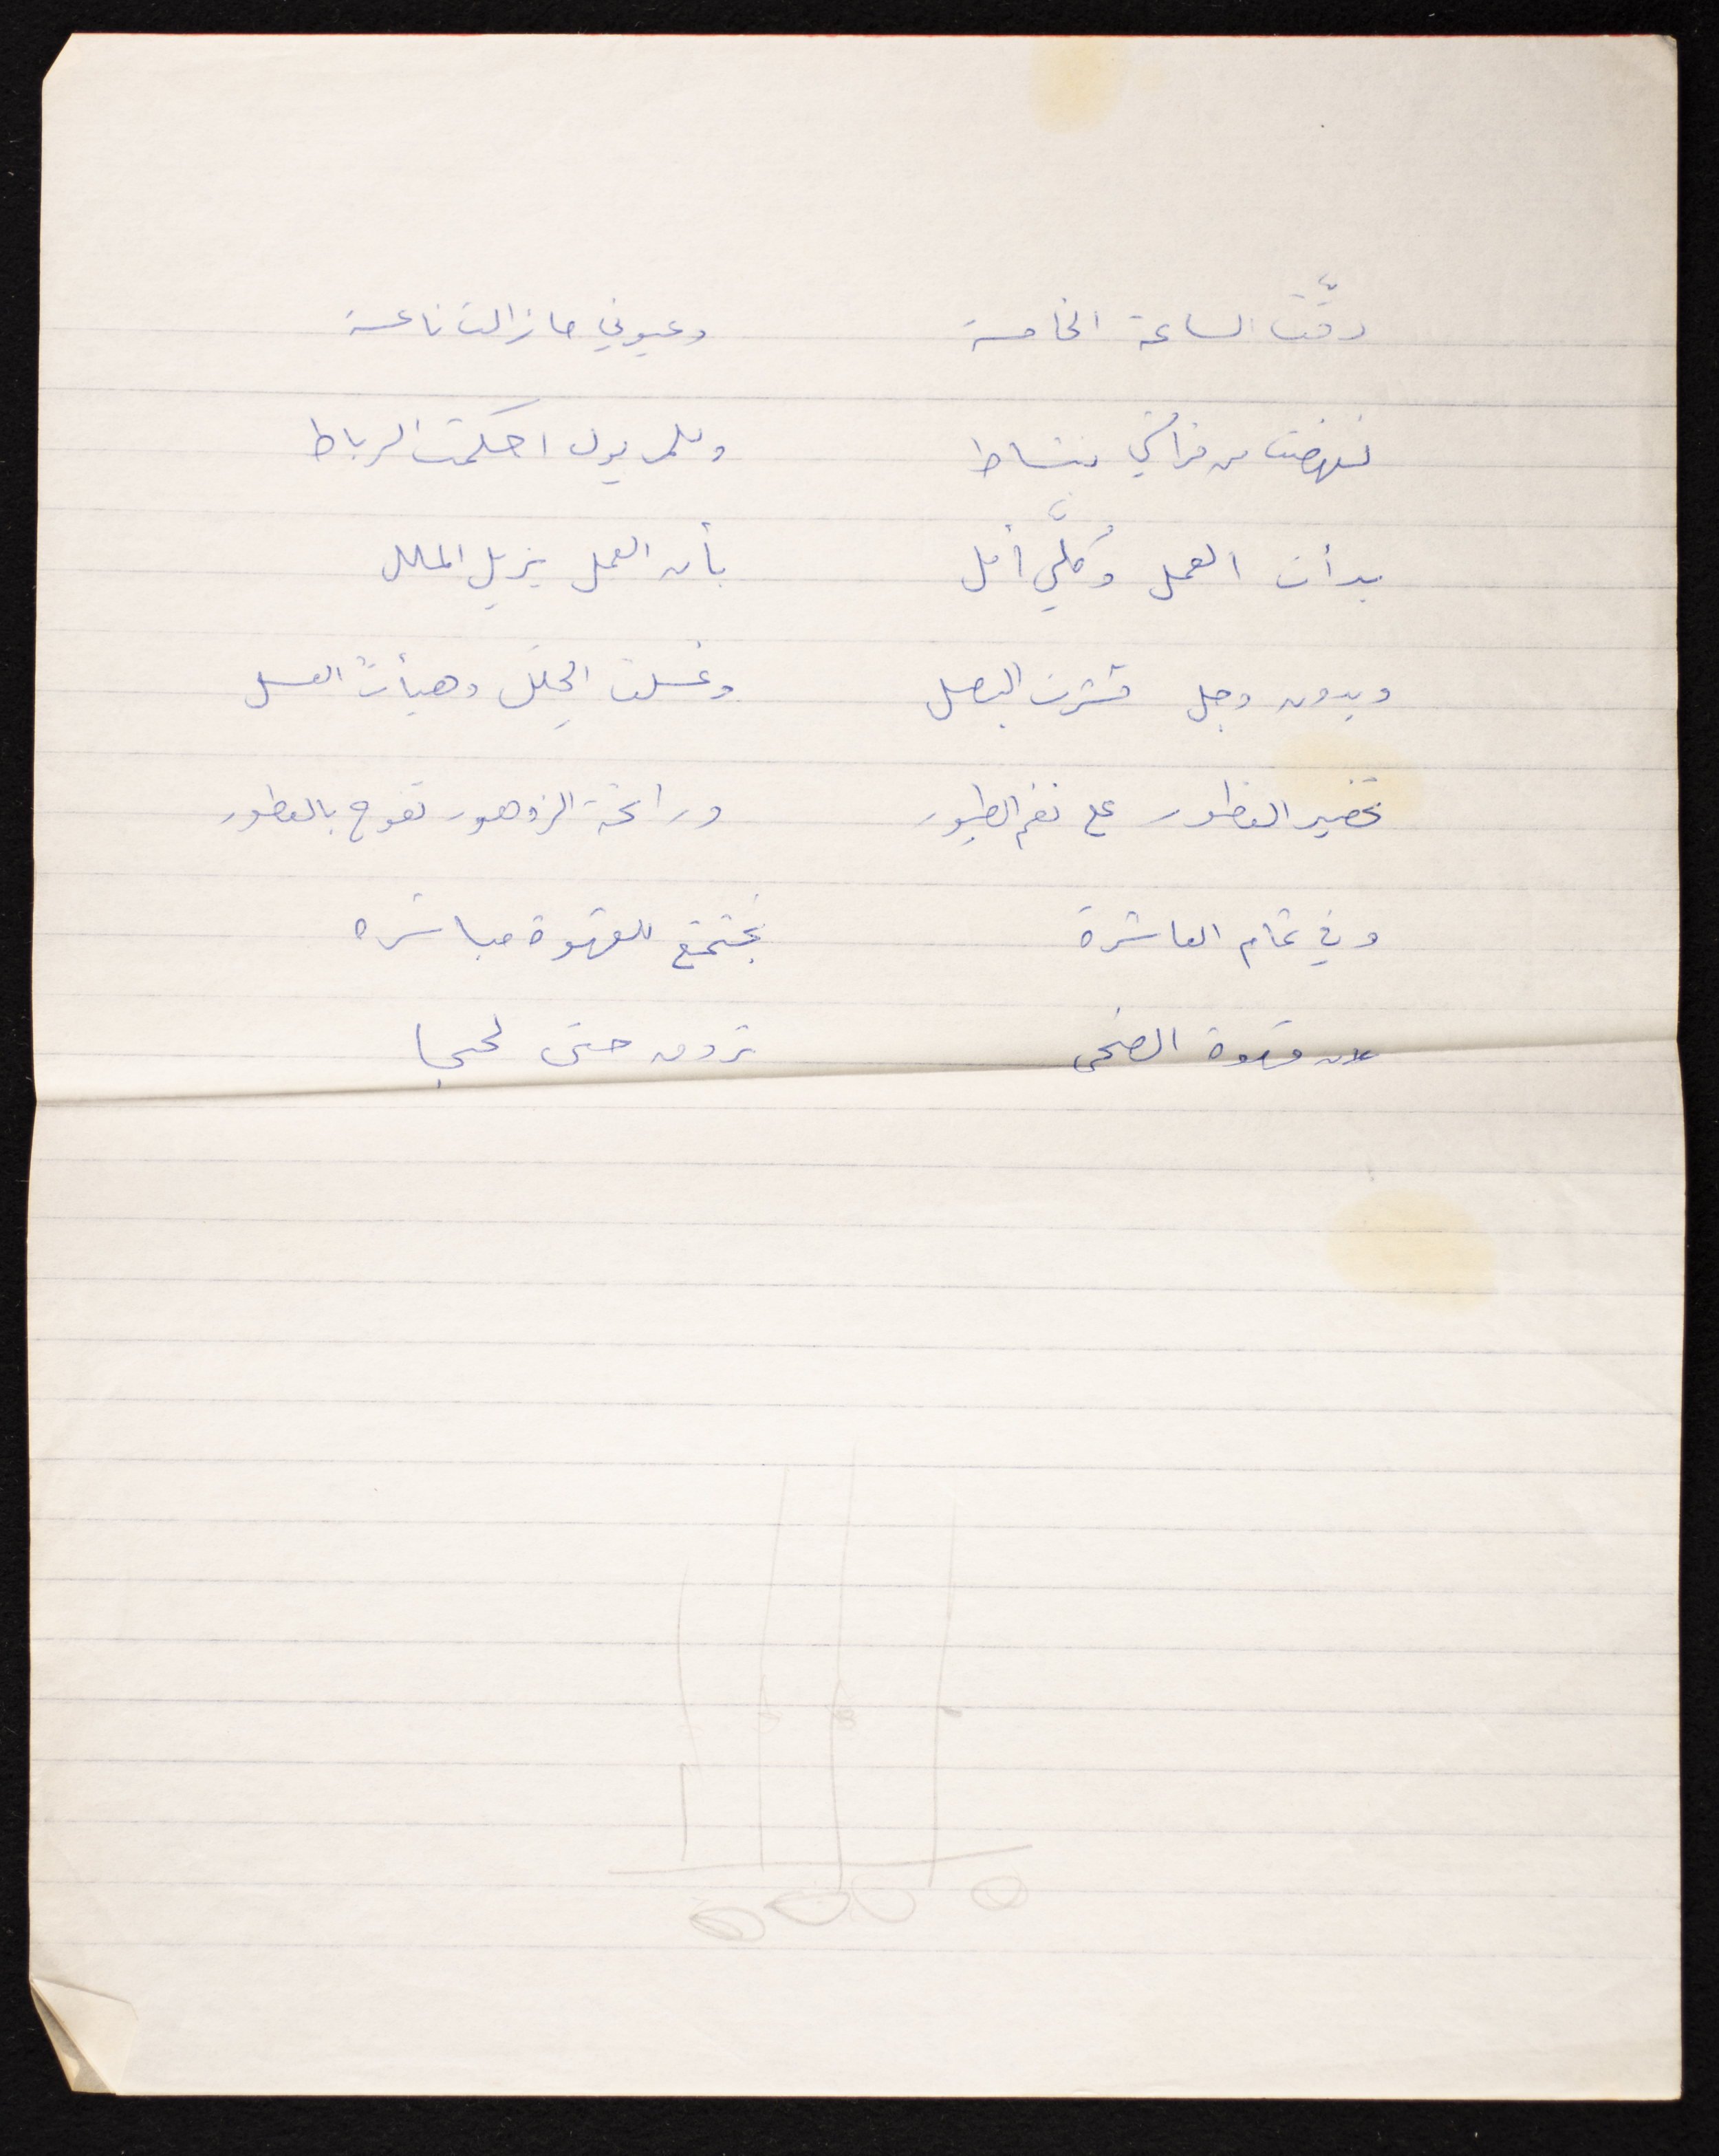 دقَّت الساعة الخامسة وعيوني ما زالت ناعسة
نهضت من فراشي بنشاط وللمريول احكمت الرباط
بدأت العمل وكلّي أمل بأن العمل يزيل الملل
وبدون وجل قشرت البصل وغسلت الحِلَل وهيأتُ العسل
تحضير الفطور على نغم الطيور ورائحة الزهور تفوح بالعطور
وفي تمام العاشرة نجتمع للقهوة مباشره
قهوة الضحى تروق حتى لحجا